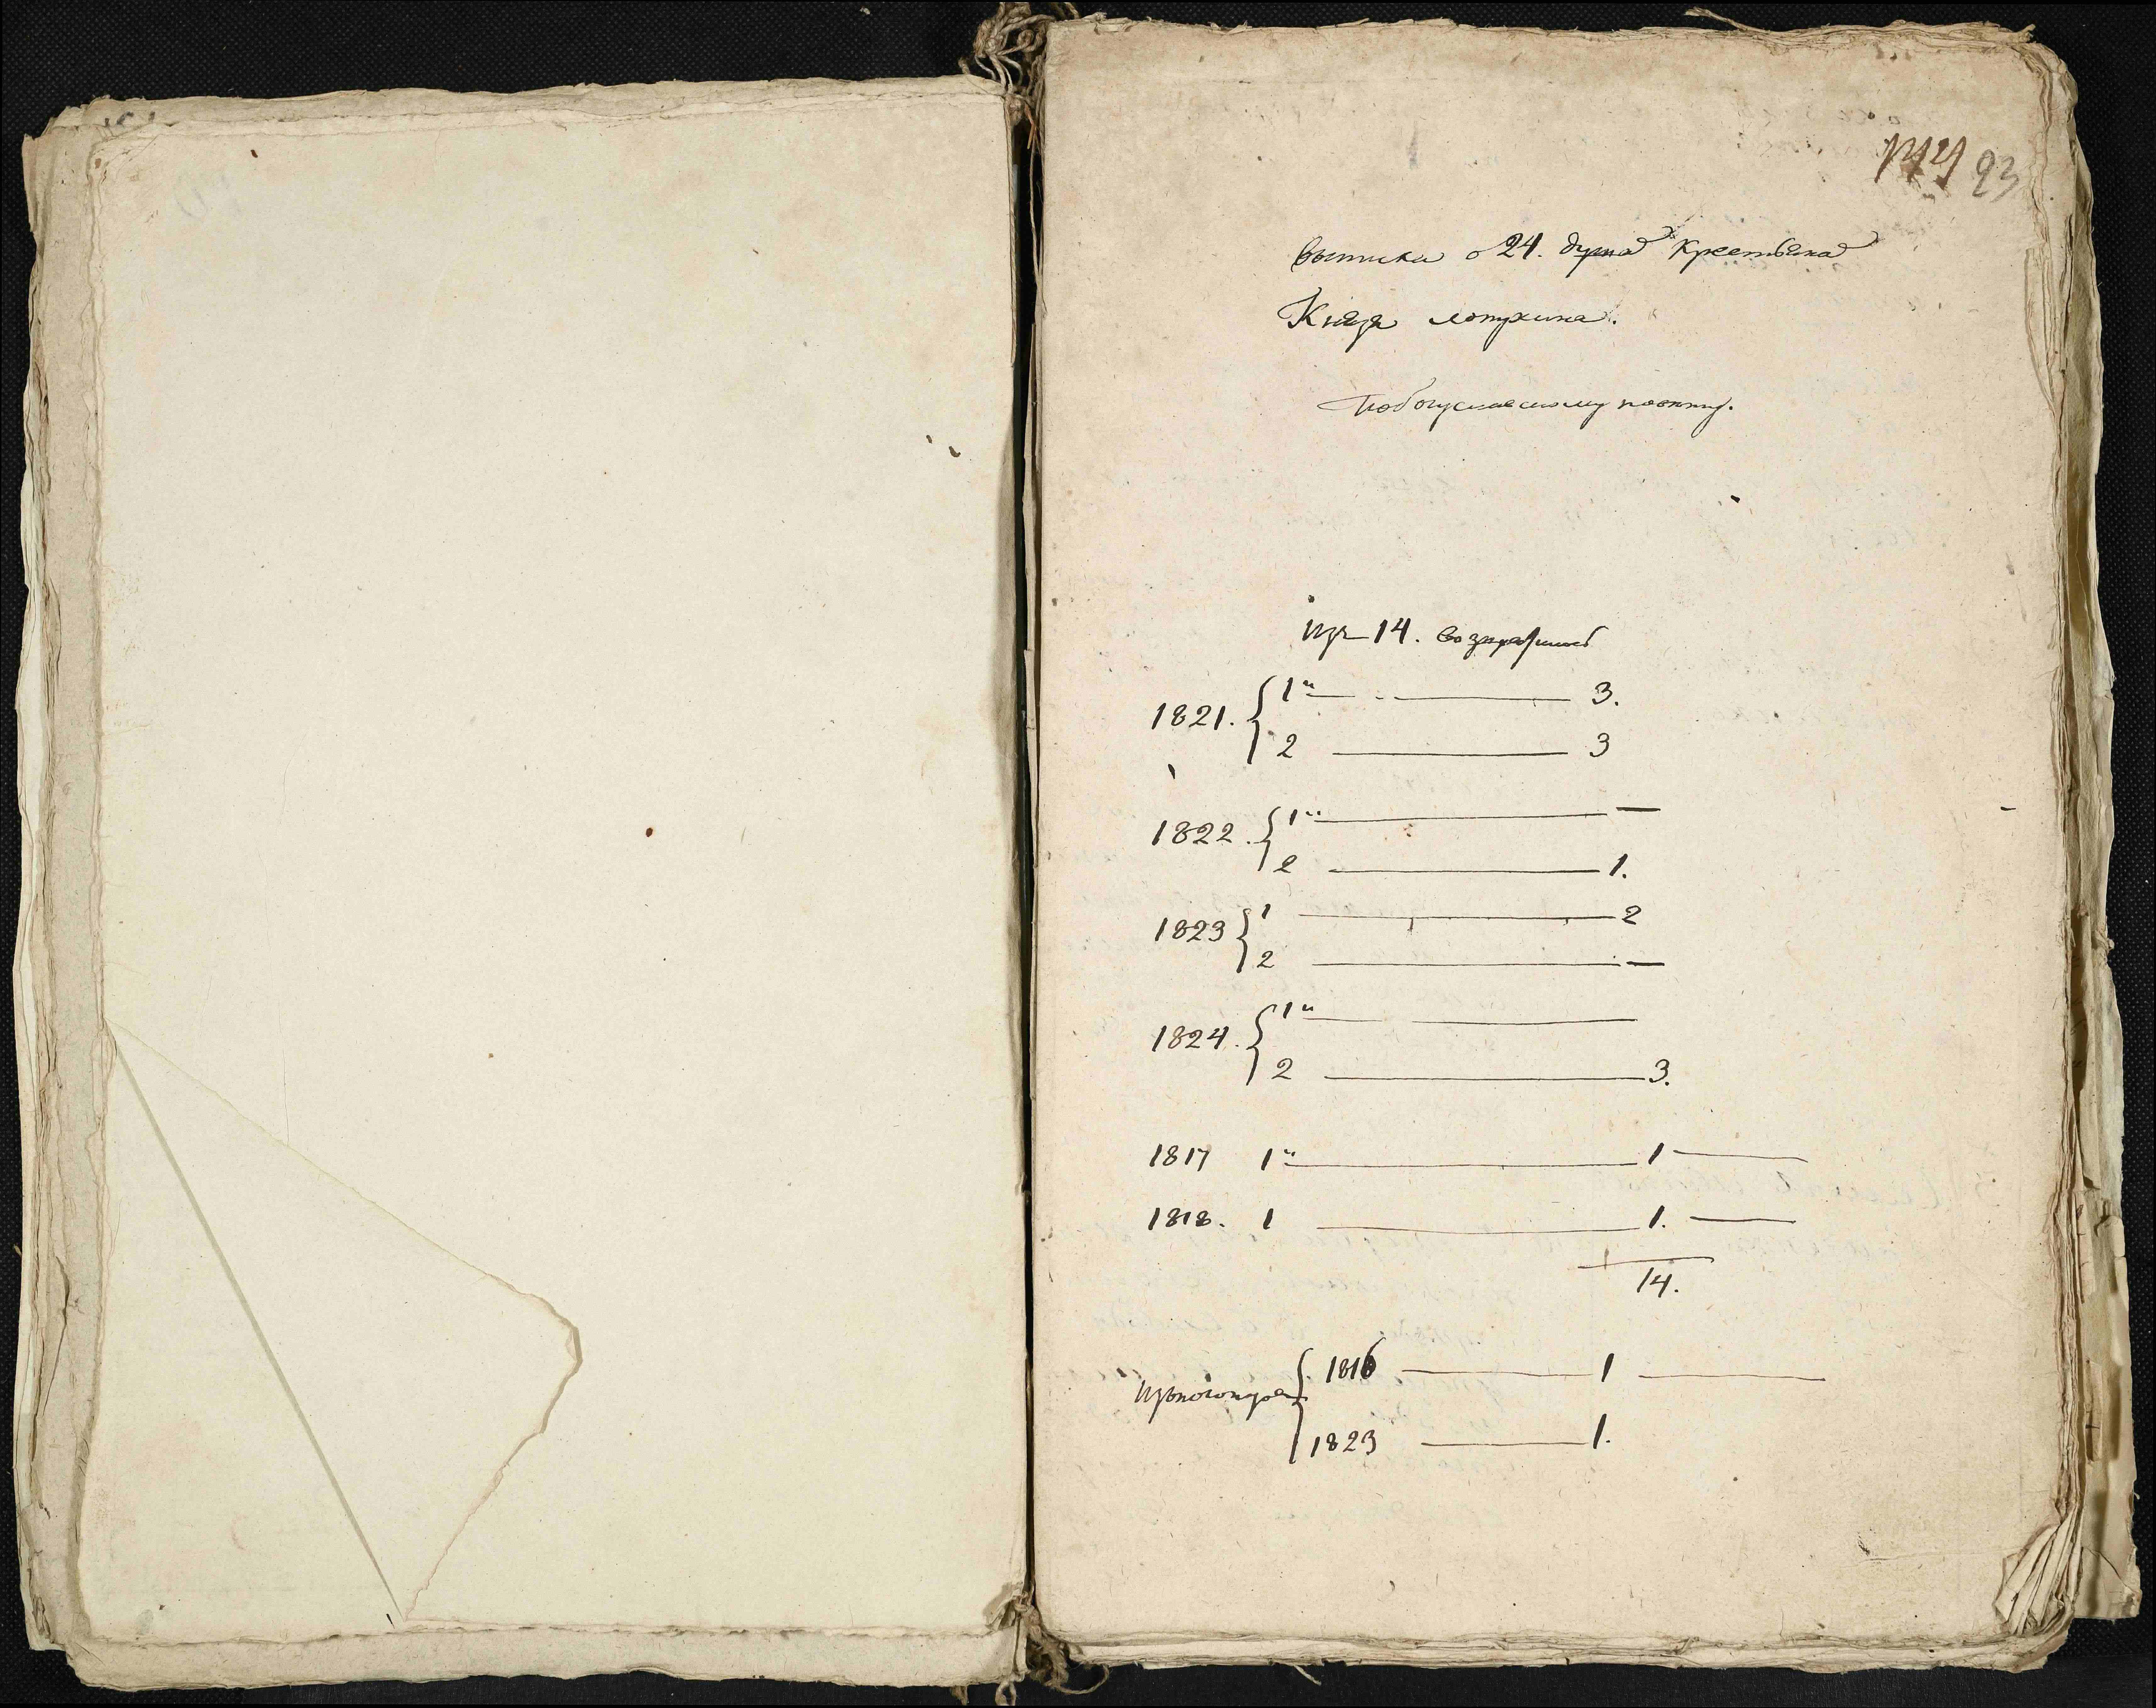 93
выписки о 24. душахъ крестьянахъ
Князя лопухина.
По богуславскому повѣту.
Изъ 14. возвра
1821. { 1й 3.
2 3
1822. { 1й —
2 1.
1823 { 1 2
2 —
1824. { 1й
2 3.
1817 1й 1
1818. 1 1.
14.
{ 1816 1
1823 1.